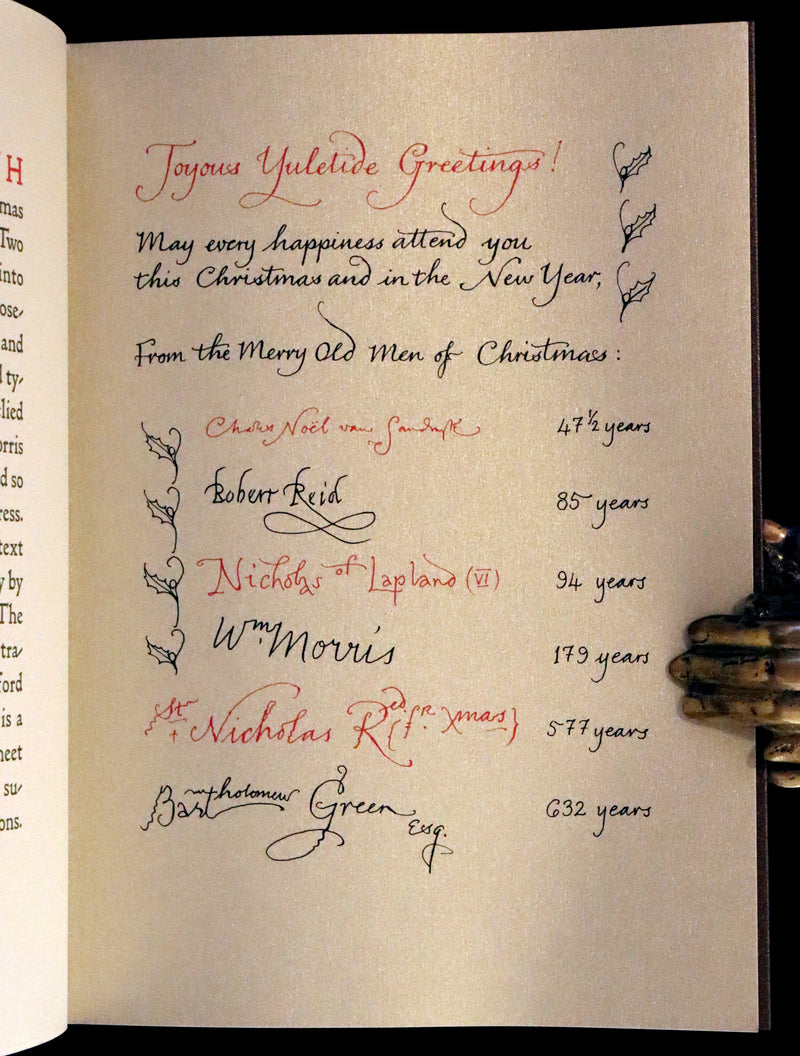 H
mas
Two
into
ose-
and
ty-
lied
orris
d so
ress.
text
y by
The
tra-
ford
is a
neet
su-
ons.
Joyous Yuletide Greetings!
May every happiness attend you
this Christmas and in the New Year,
From the Merry Old Men of Christmas:
Charles Noël van Sandwyk 47½ years
Robert Reid 85 years
Nicholas of Lapland (VI) 94 years
Wm. Morris 179 years
St. Nicholas Red {fr. Xmas} 577 years
Bartholomew Green Esq. 632 years